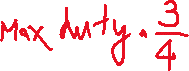 Max duty = 3/4